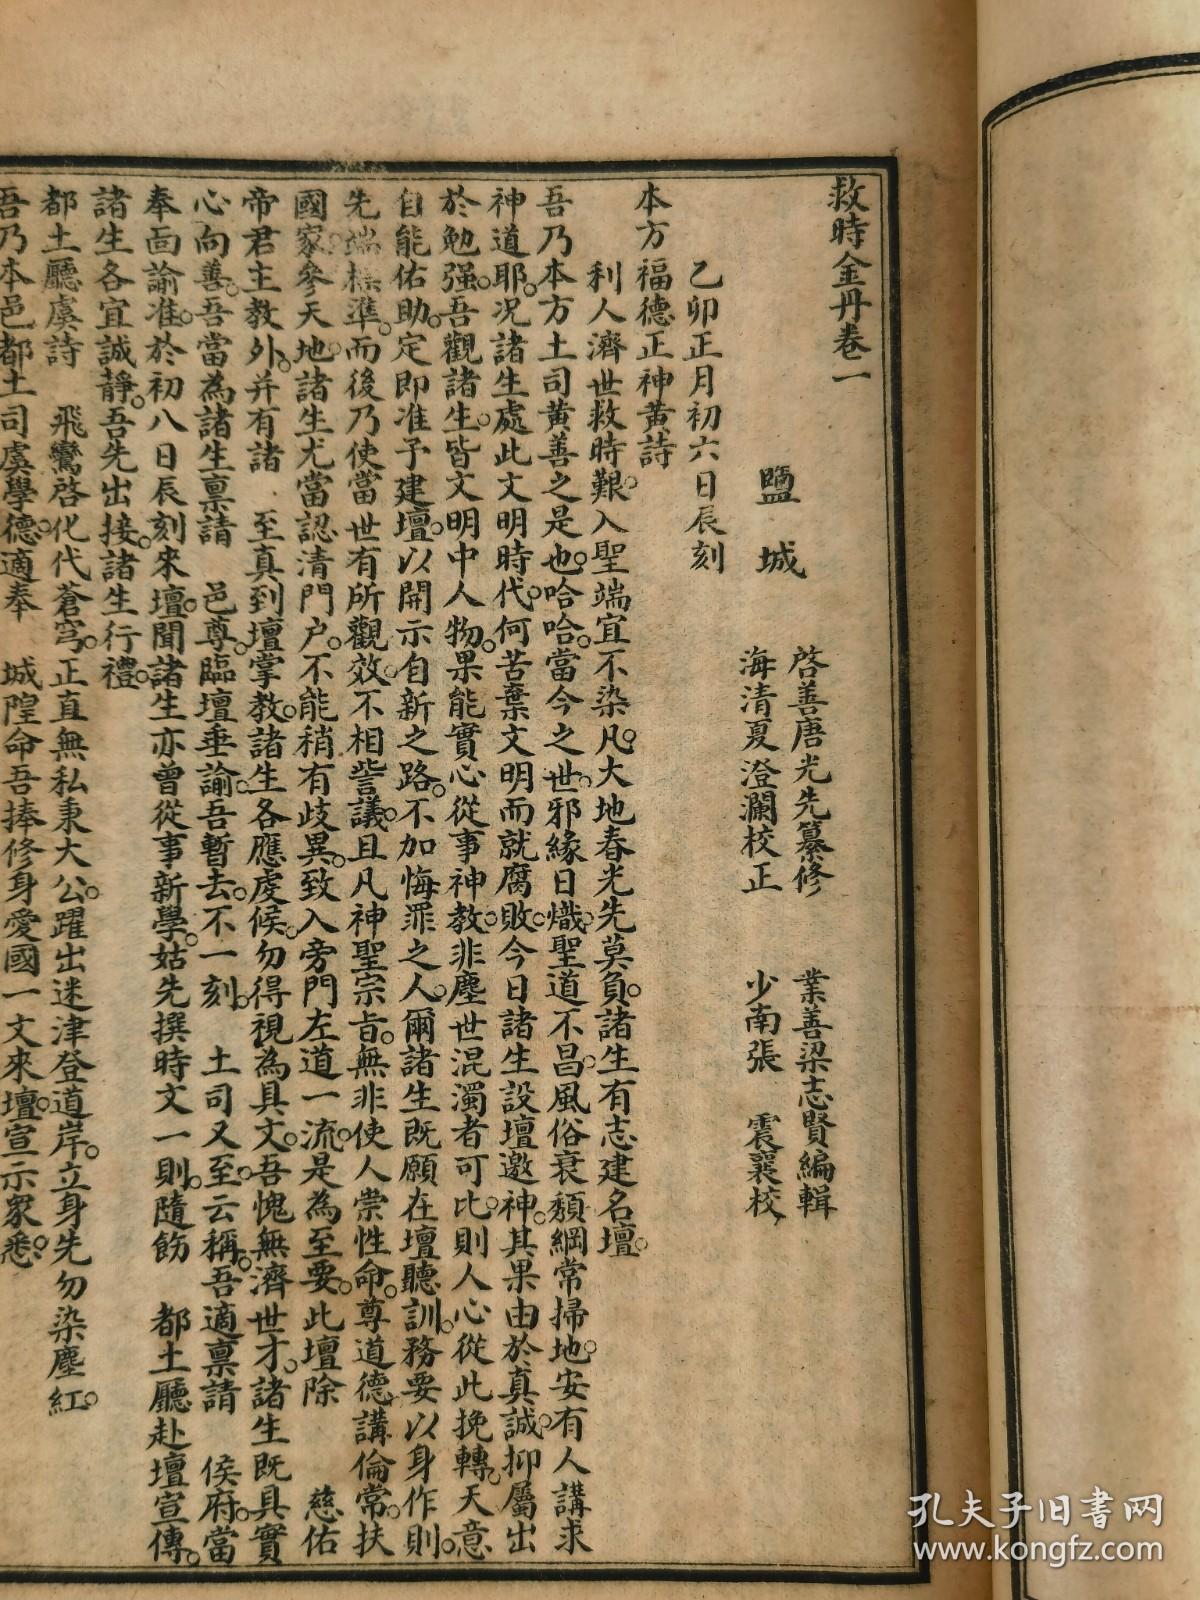 救時金丹卷一
啓善唐光先纂修　業善梁志賢編輯
鹽城
海清夏澄瀾校正　少南張　震襄校
乙卯正月初六日辰刻
本方福德正神黃詩
利人濟世救時艱。入聖端宜不染凡。大地春光先莫負。諸生有志建名壇。
吾乃本方土司黃善之是也。哈哈。當今之世。邪緣日熾。聖道不昌。風俗衰頹。綱常掃地。安有人講求
神道耶。况諸生處此文明時代。何苦棄文明而就腐敗。今日諸生設壇邀神。其果由於真誠。抑屬出
於勉强。吾觀諸生。皆文明中人物。果能實心從事神教。非塵世混濁者可比。則人心從此挽轉。天意
自能佑助。定即准予建壇。以開示自新之路。不加悔罪之人。爾諸生既願在壇聽訓。務要以身作則。
先端標準。而後乃使當世有所觀效。不相訾議。且凡神聖宗旨。無非使人崇性命。尊道德。講倫常。扶
國家。參天地。諸生尤當認清門户。不能稍有歧異。致入旁門左道一流。是為至要。此壇除　慈佑
帝君主教外。并有諸　至真到壇掌教。諸生各應虔候。勿得視為具文。吾愧無濟世才。諸生既具實
心向善。吾當為諸生禀請　邑尊。臨壇垂諭。吾暫去。不一刻。　土司又至。云稱。吾適禀請　侯府。當
奉面諭。准於初八日辰刻來壇。聞諸生亦曾從事新學。姑先撰時文一則。隨飭　都土廳赴壇宣傳。
諸生各宜誠靜。吾先出接。諸生行禮。
都土廳虞詩　飛鸞啓化代蒼穹。正直無私秉大公。躍出迷津登道岸。立身先勿染塵紅。
吾乃本邑都土司虞學德。適奉　城隍命吾捧修身愛國一文來壇。宣示眾悉。
孔夫子旧书网
www.kongfz.com